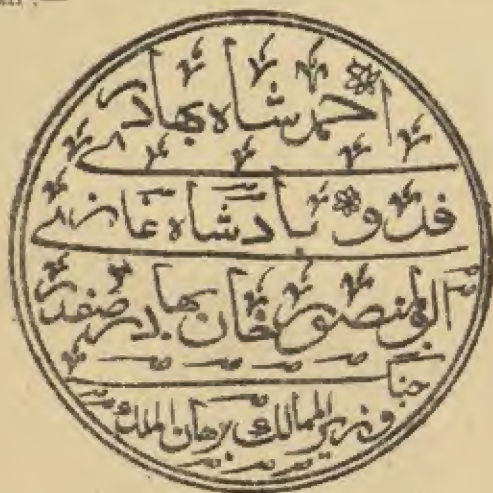 احمد شاه بهادر
فدوی بادشاه غازی
ابوالمنصور خان بهادر صفدر
جنگ وزیر الممالک برهان الملک